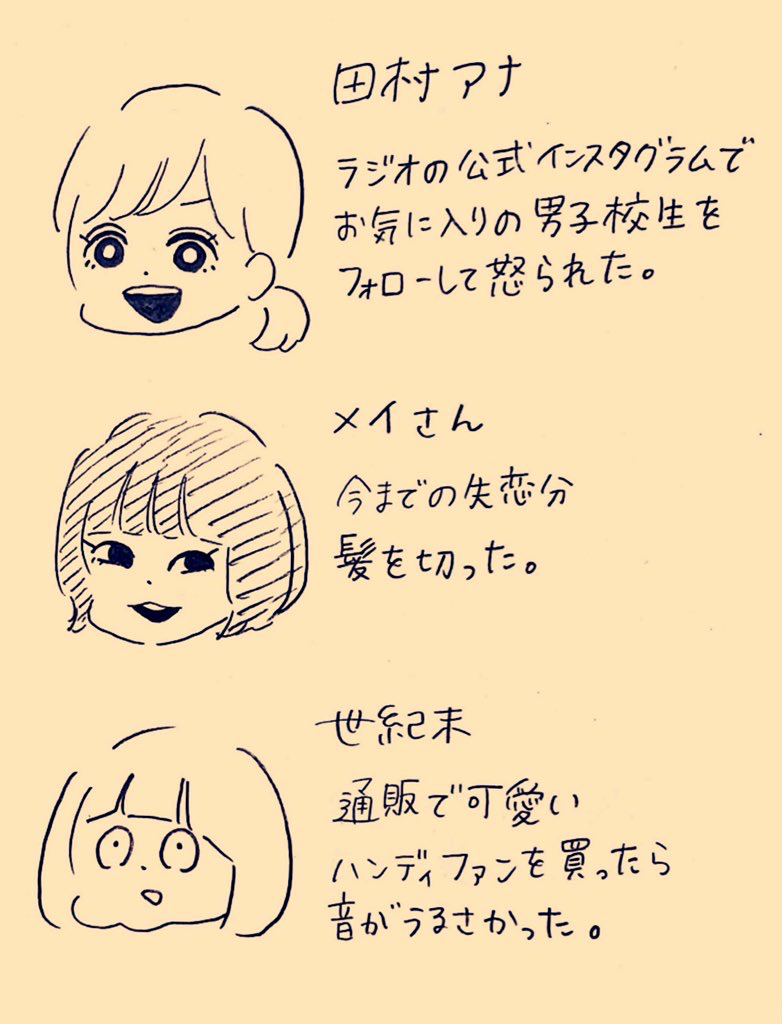 田村アナ
ラジオの公式インスタグラムで
お気に入りの男子校生を
フォローして怒られた。
メイさん
今までの失恋分
髪を切った。
世紀末
通販で可愛い
ハンディファンを買ったら
音がうるさかった。